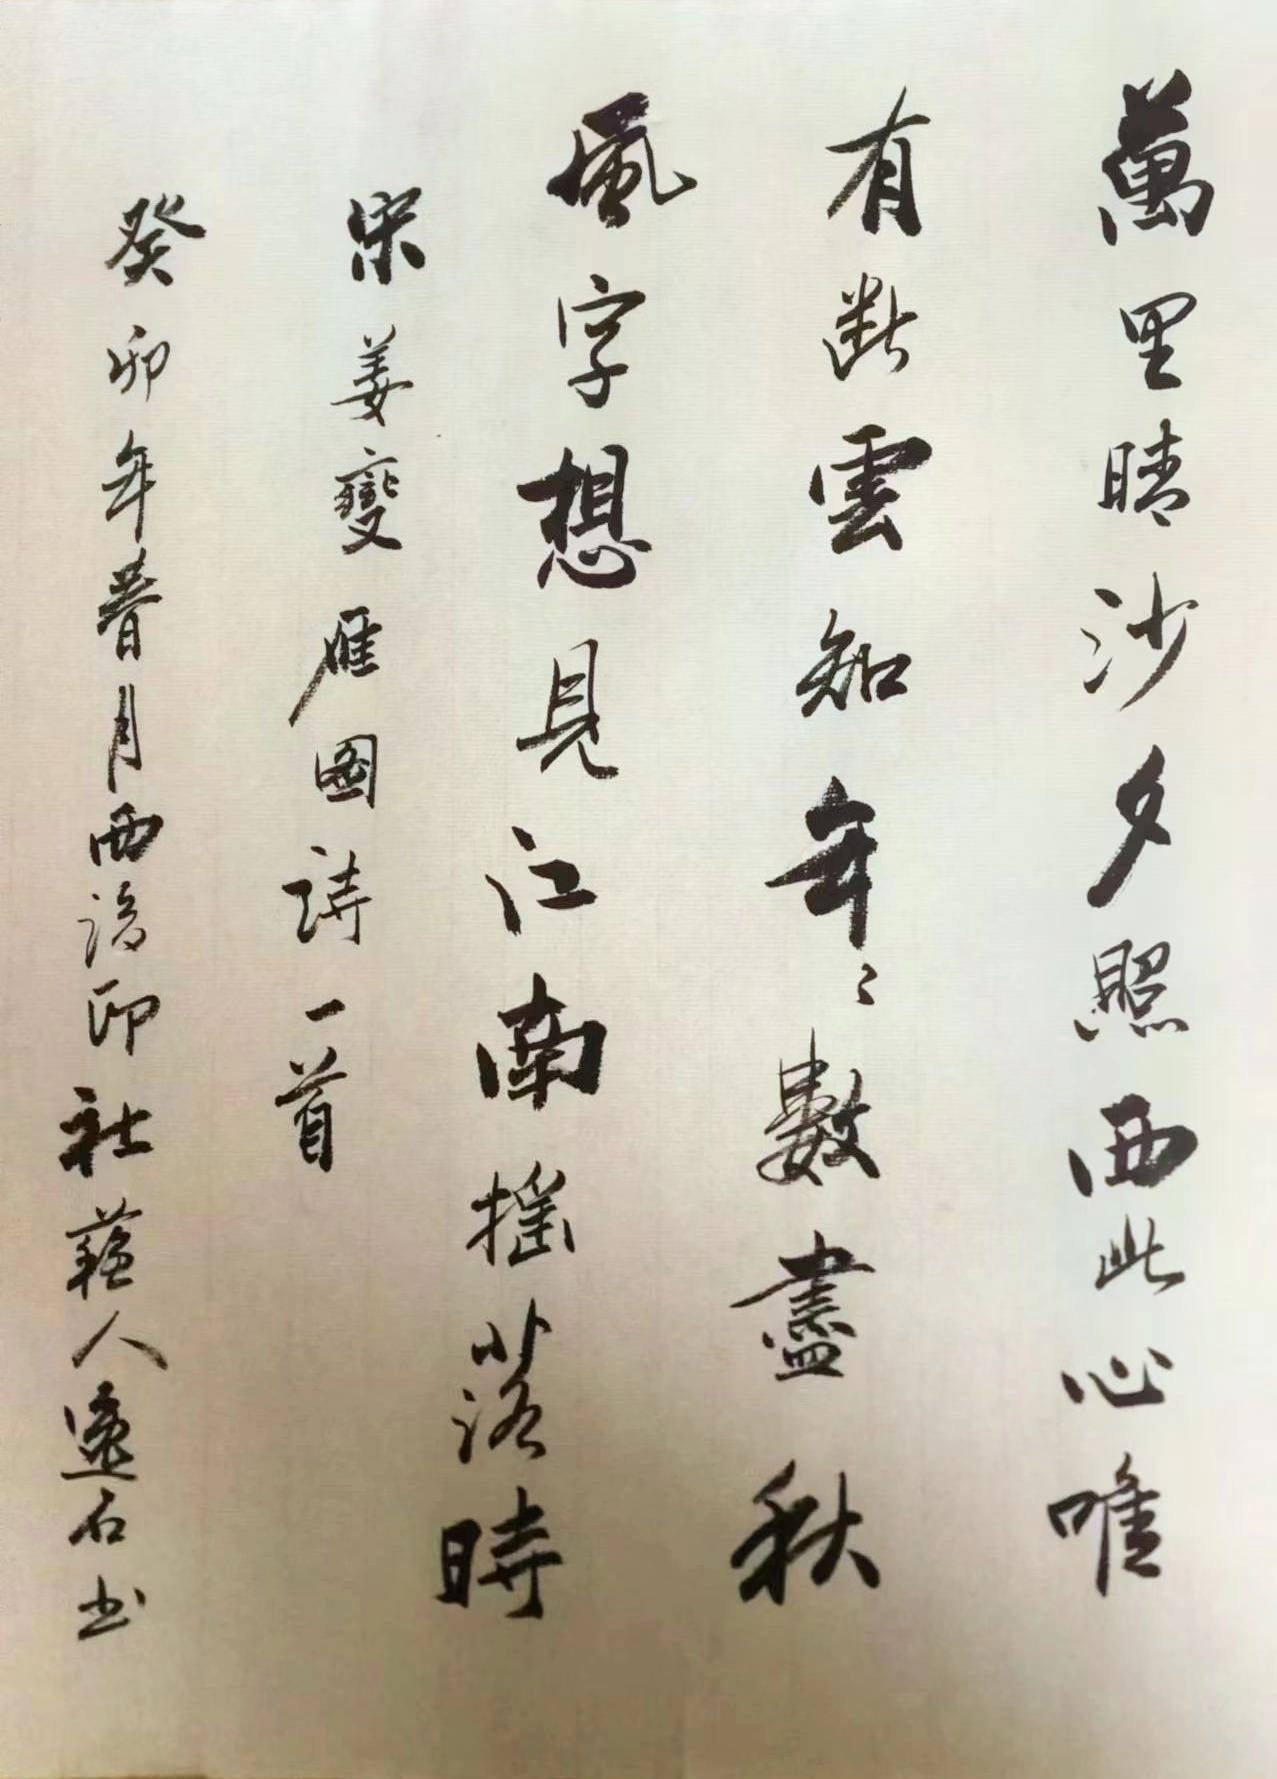 萬里晴沙夕照西此心唯
有断雲知年々數盡秋
風字想見江南摇落時
宋姜夔雁图詩一首
癸卯年春月西泠印社藝人逸石书